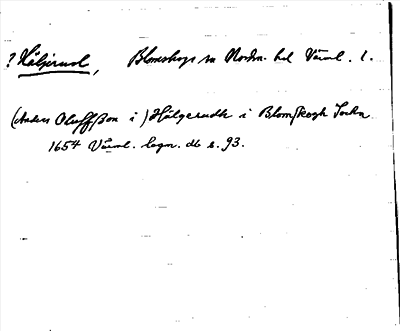 ? Häljerud, Blomskogs sn Nordm. hd Värml. l.
(Anders Oluffßon i) Hälgerudh i Blomskogh Sochn
1654 Värml. lagn. db s. 93.